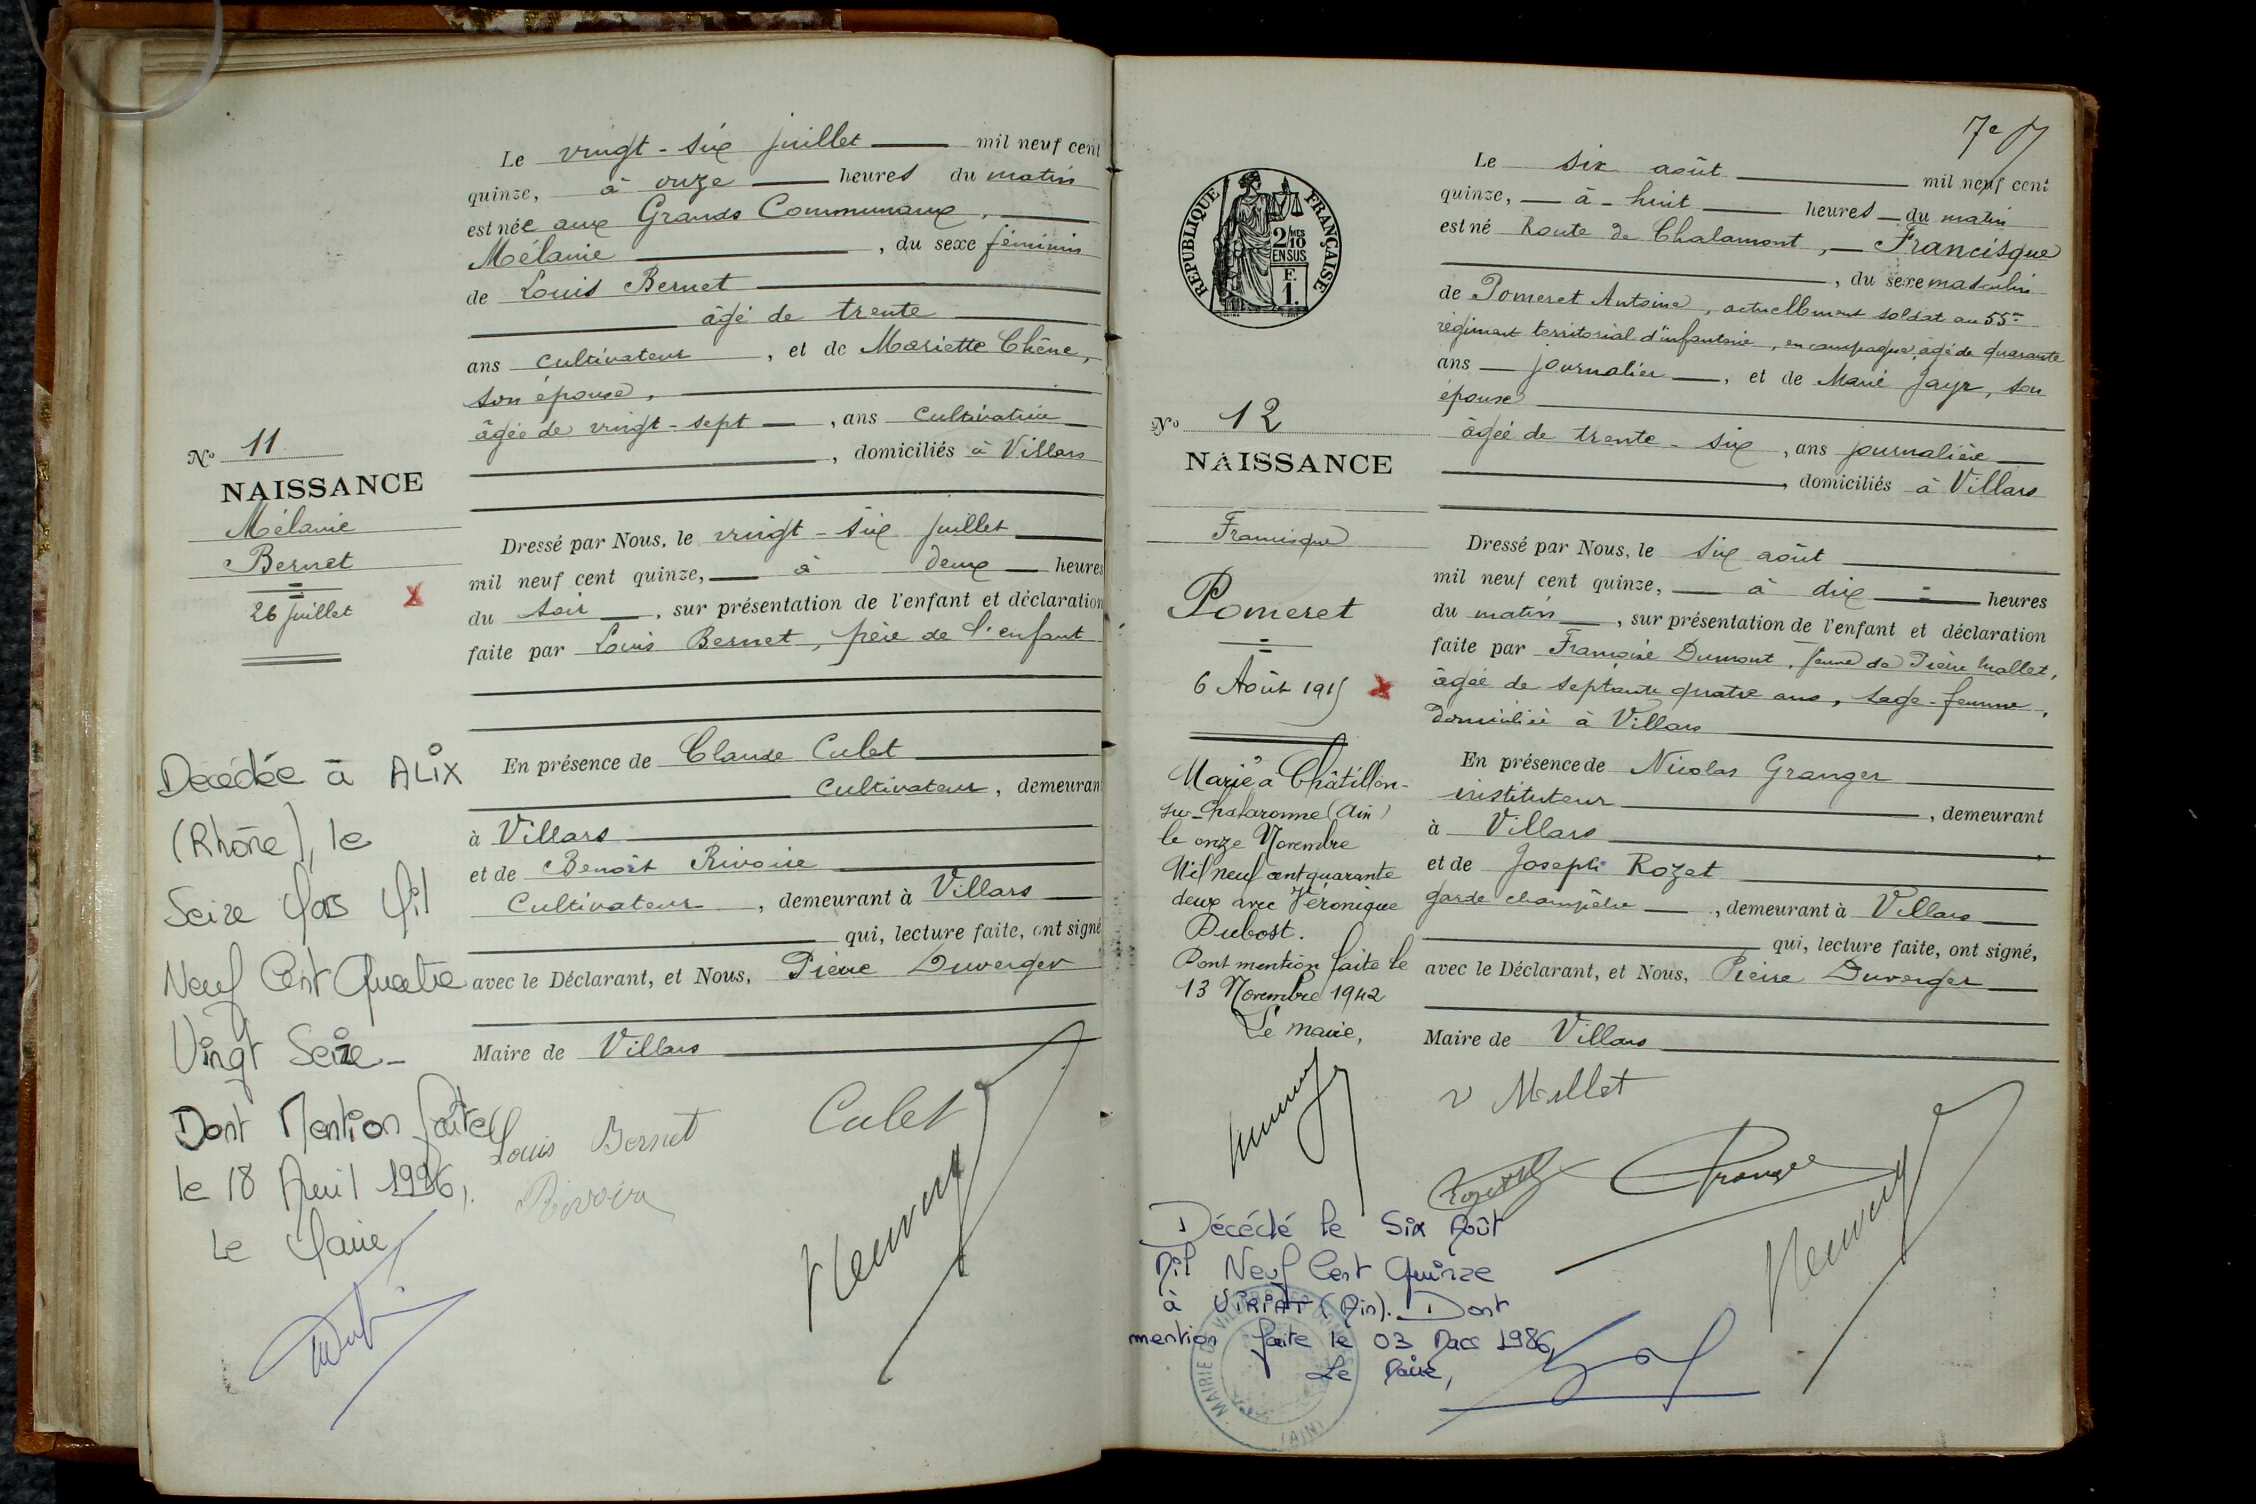 Le vingt-six juillet mil neuf cent
quinze, à onze heures du matin
est née aux Grands Communaux,
Mélanie , du sexe féminin
de Louis Bernet
âgé de trente
ans cultivateur , et de Mariette Chêne,
son épouse,
âgée de vingt-sept , ans cultivatrice
, domiciliés à Villars
No 11
NAISSANCE
Mélanie
Bernet
26 juillet
Dressé par Nous, le vingt-six juillet
mil neuf cent quinze, à deux heures
du soir , sur présentation de l'enfant et déclaration
faite par Louis Bernet, père de l'enfant
En présence de Claude Culet
cultivateur, demeurant
à Villars
et de Benoît Rivoire
Cultivateur , demeurant à Villars
qui, lecture faite, ont signé
avec le Déclarant, et Nous, Pierre Duverger
Maire de Villars
Décédée à ALIX
(Rhône), le
Seize Mars Mil
Neuf Cent Quatre
Vingt Seize
Dont Mention faite
le 18 Avril 1996,
Le Maire
Louis Bernet
Culet
Rivoire
7e
REPUBLIQUE FRANÇAISE
2/10MES
EN SUS
F.
1.
Le six août mil neuf cent
quinze, à huit heures du matin
est né Route de Chalamont, Francisque
, du sexe masculin
de Pomeret Antoine, actuellement soldat au 55me
régiment territorial d'infanterie, en campagne, âgé de quarante
ans journalier , et de Marie Jayr, son
épouse
âgée de trente-six , ans journalière
, domiciliés à Villars
No 12
NAISSANCE
Francisque
Pomeret
6 Août 1915
Dressé par Nous, le six août
mil neuf cent quinze, à dix heures
du matin , sur présentation de l'enfant et déclaration
faite par Françoise Dumont, femme de Pierre Mallet,
âgée de septante quatre ans, sage-femme,
domiciliée à Villars
En présence de Nicolas Granger
instituteur , demeurant
à Villars
et de Joseph Rozet
garde champêtre , demeurant à Villars
qui, lecture faite, ont signé,
avec le Déclarant, et Nous, Pierre Duverger
Maire de Villars
Marié à Châtillon-
sur-Chalaronne (Ain)
le onze Novembre
Mil neuf cent quarante
deux avec Véronique
Dubost.
Dont mention faite le
13 Novembre 1942
Le maire,
Mallet
Granger
Décédé le Six Août
Mil Neuf Cent Quinze
à VIRIAT (Ain). Dont
mention faite le 03 Mars 1986,
Le Maire,
MAIRIE DE VILLARS LES DOMBES
(AIN)